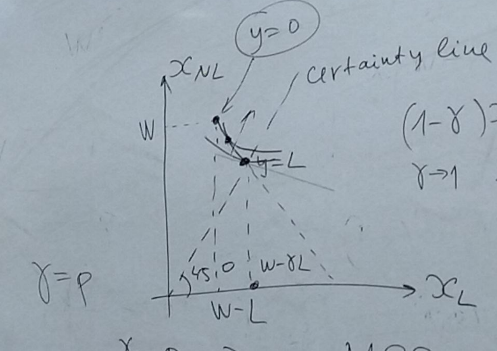 y=0
x_NL
certainty line
W
(1-γ)=
y=L
γ→1
γ=p
45°
w-γL
W-L
x_L